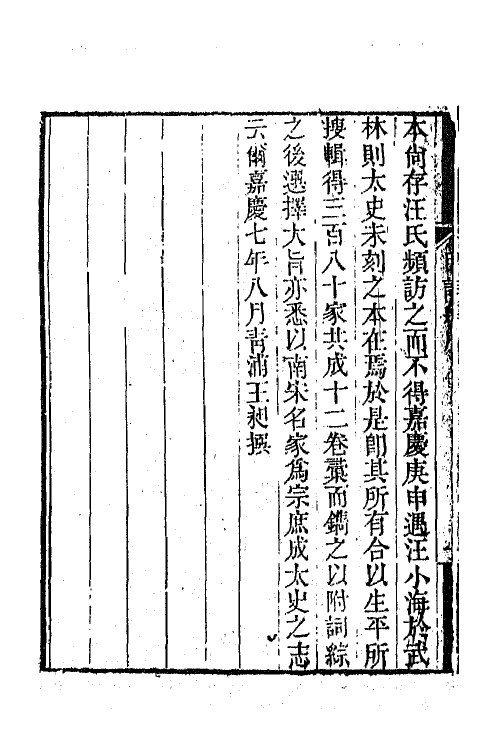 本尚存汪氏頻訪之而不得嘉慶庚申遇汪小海於武
林則太史未刻之本在焉於是卽其所有合以生平所
搜輯得三百八十家共成十二卷彙而鐫之以附詞綜
之後選擇大旨亦悉以南宋名家爲宗庶成太史之志
云爾嘉慶七年八月青浦王昶撰